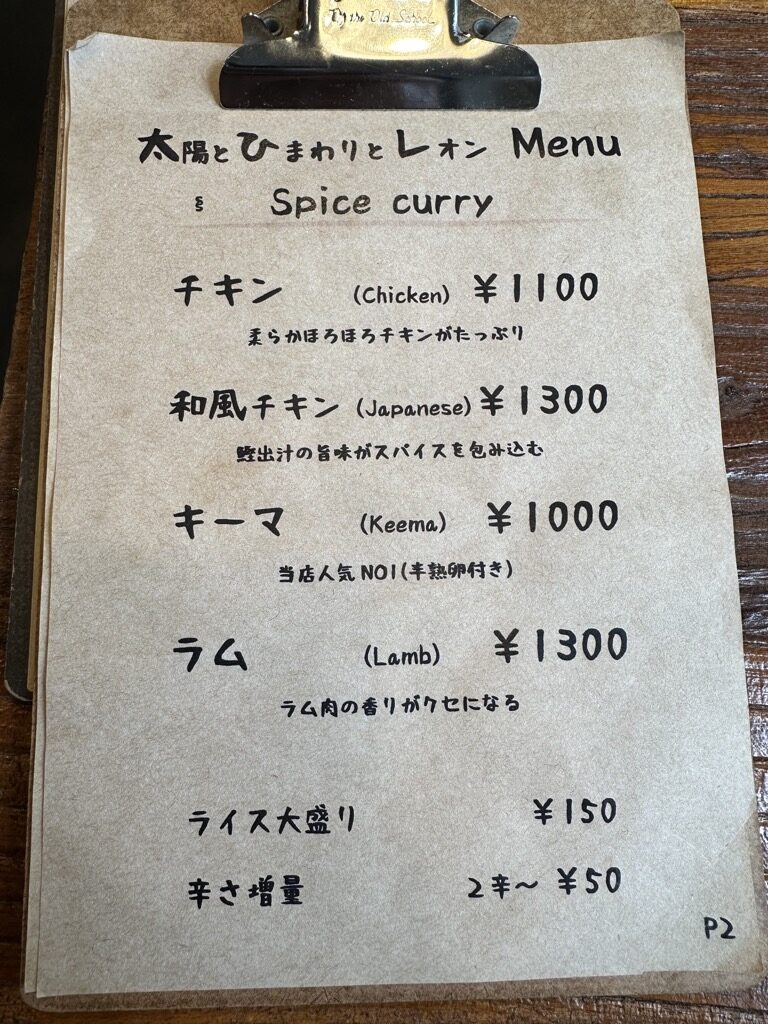 By the Old School
太陽とひまわりとレオン Menu
Spice curry
チキン (Chicken) ¥1100
柔らかほろほろチキンがたっぷり
和風チキン (Japanese) ¥1300
鰹出汁の旨味がスパイスを包み込む
キーマ (Keema) ¥1000
当店人気NO1(半熟卵付き)
ラム (Lamb) ¥1300
ラム肉の香りがクセになる
ライス大盛り ¥150
辛さ増量 2辛〜 ¥50
P2